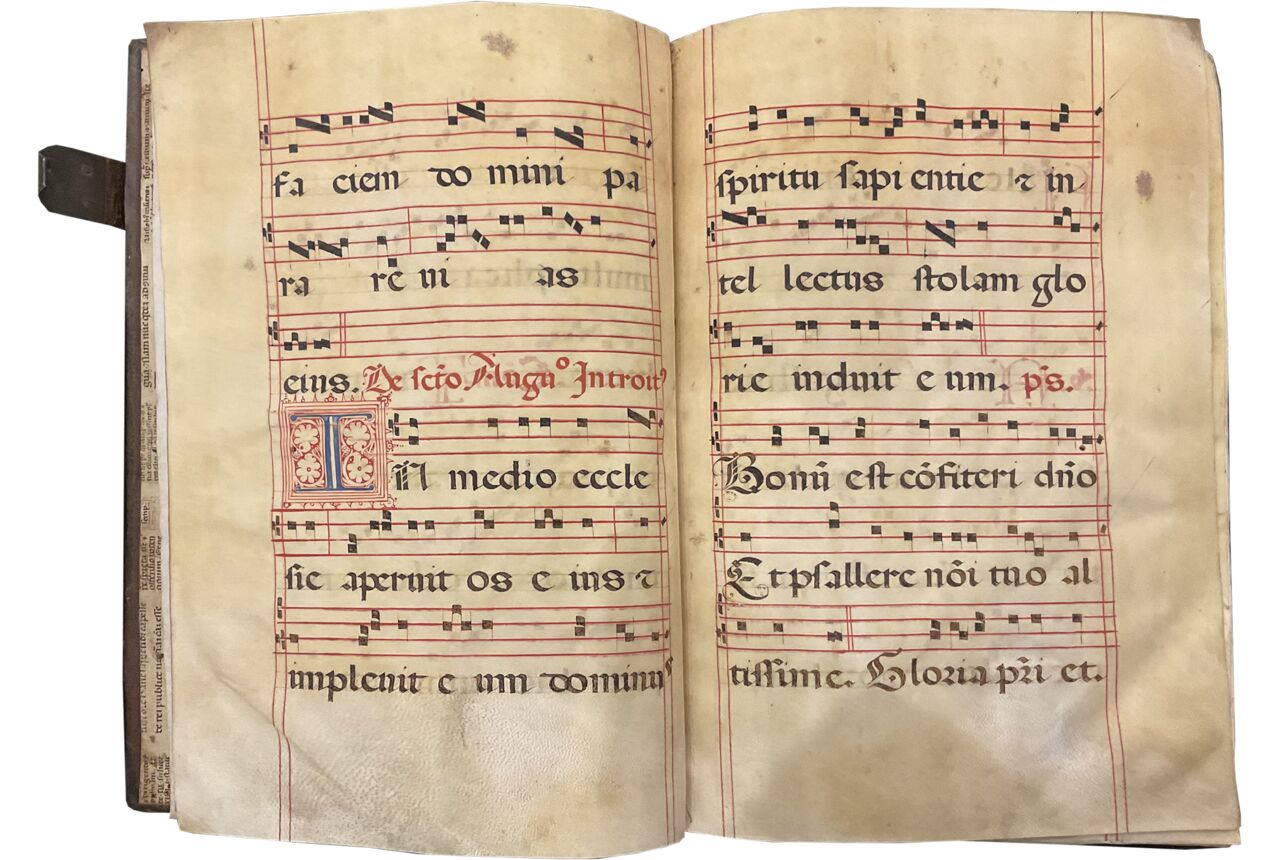 fa ciem do mini pa
ra re vi as
eius. De scto Augu° Introit'
IN medio eccle
sie aperuit os e ius ⁊
impleuit e um dominus
spiritu sapi entie ⁊ in
tel lectus stolam glo
rie induit e um. ps.
Bonū est cōfiteri dn̄o
Et psallere nōi tuo al
tissime. Gloria pr̄i et.